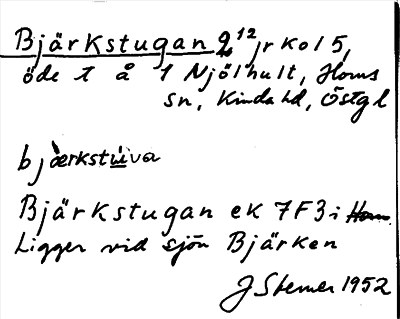 Bjärkstugan 2 12 jr kol 5,
öde t å 1 Njölhult, Horns
sn, Kinda hd, Östgl
bjærkstu̲i̲va
Bjärkstugan ek 7F3i
Ligger vid sjön Bjärken
J Stemer 1952